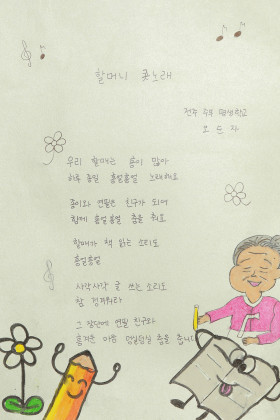 할머니 콧노래
전주 수부 평생학교
오 드 자
우리 할매는 흥이 많아
하루 종일 흥얼흥얼 노래해요
종이와 연필은 친구가 되어
함께 흥얼흥얼 춤을 춰요
할매가 책 읽는 소리도
흥얼흥얼
사각사각 글 쓰는 소리도
참 정겨워라
그 장단에 연필 친구와
흥겨운 마음 덩실덩실 춤을 춥니다